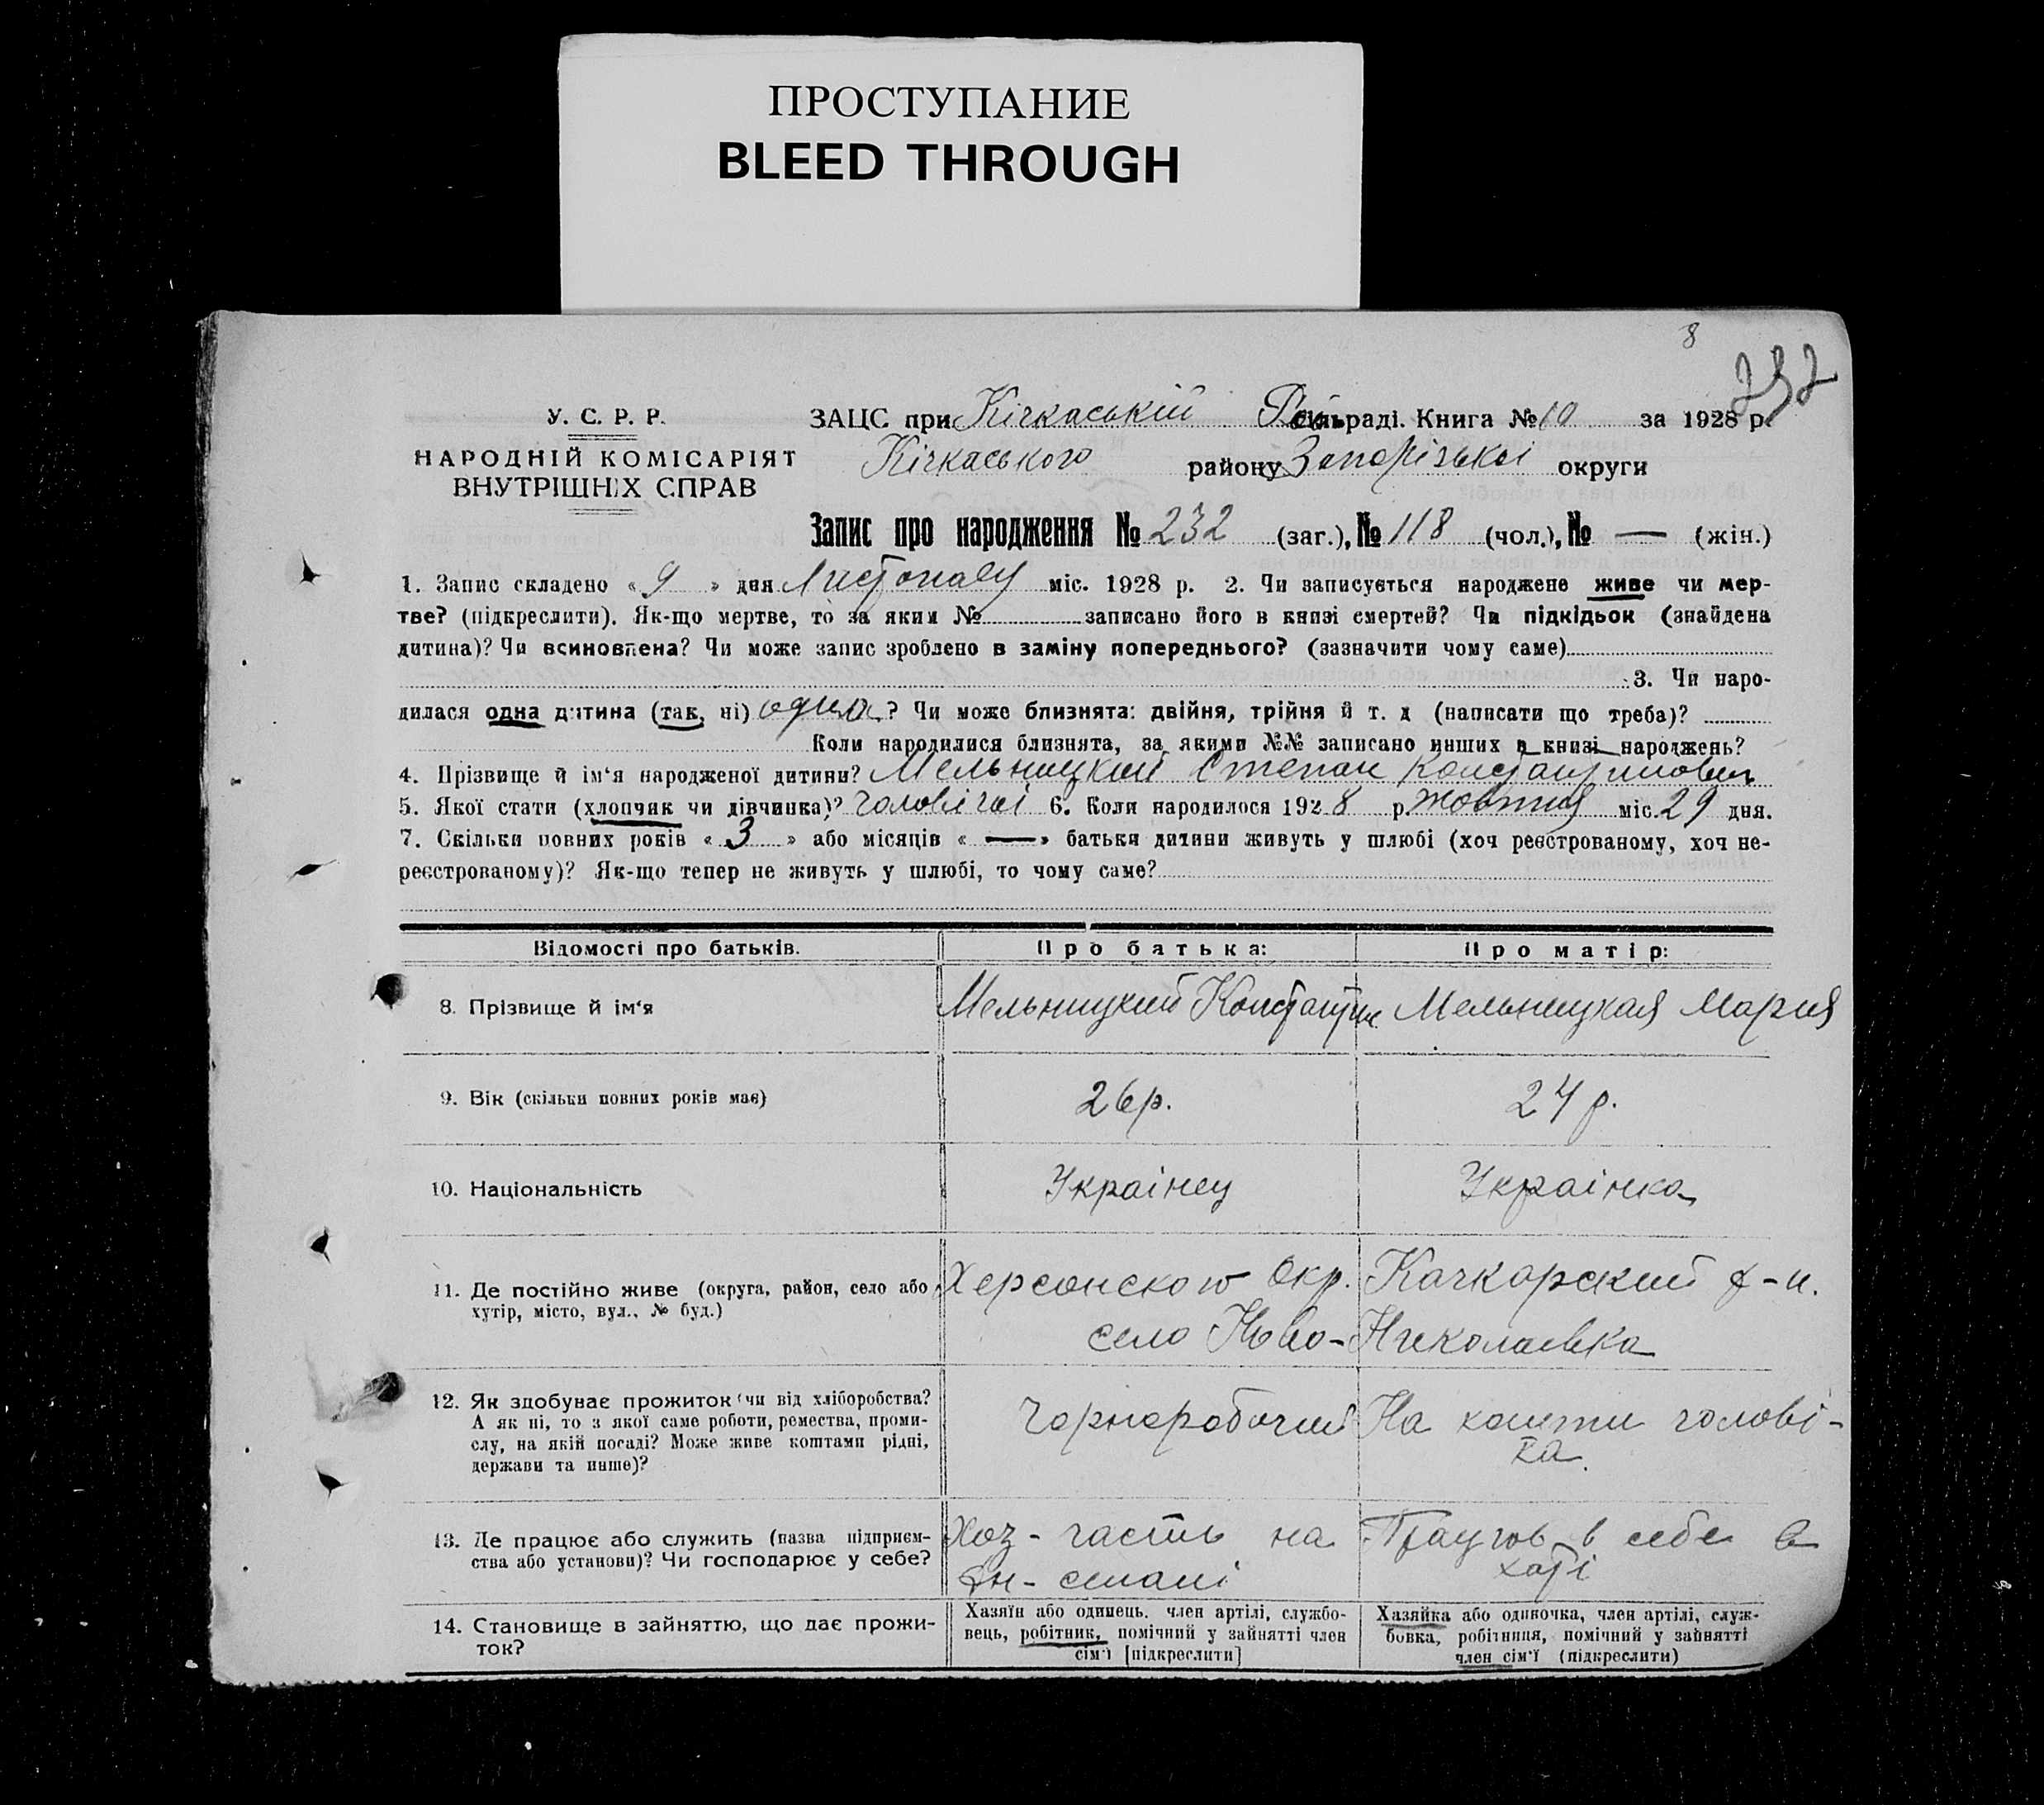 ПРОСТУПАНИЕ
BLEED THROUGH
8
232
У. С. Р. Р.
НАРОДНІЙ КОМІСАРІЯТ
ВНУТРІШНІХ СПРАВ
ЗАЦС при Кічкаській раді. Книга № 10 за 1928 р.
Кічкаського району Запорізької округи
Запис про народження № 232 (заг.), № 118 (чол.), № — (жін.)
1. Запис складено « 9 » дня Листопаду міс. 1928 р. 2. Чи записується народжене живе чи мер-
тве? (підкреслити). Як-що мертве, то за яким № записано його в книзі смертей? Чи підкідьок (знайдена
дитина)? Чи всиновлена? Чи може запис зроблено в заміну попереднього? (зазначити чому саме)
3. Чи наро-
дилася одна дитина (так, ні) одна? Чи може близнята: двійня, трійня й т. д (написати що треба)?
Коли народилися близнята, за якими №№ записано инших в книзі народжень?
4. Прізвище й ім‘я народженої дитини? Мельницкий Степан Константинович
5. Якої стати (хлопчик чи дівчинка)? чоловічої 6. Коли народилося 1928 р. жовтня міс. 29 дня.
7. Скільки повних років « 3 » або місяців « — » батьки дитини живуть у шлюбі (хоч реєстрованому, хоч не-
реєстрованому)? Як-що тепер не живуть у шлюбі, то чому саме?
Відомості про батьків. Про батька: Про матір:
8. Прізвище й ім‘я Мельницкий Константин Мельницкая Мария
9. Вік (скільки повних років має) 26 р. 24 р.
10. Національність Украінец Украінка
11. Де постійно живе (округа, район, село або Херсонского Окр. Качкарский р-н.
хутір, місто, вул., № буд.) село Ново-Николаевка
12. Як здобуває прожиток (чи від хліборобства? Чорноробочий На кошти чолові-
А як ні, то з якої саме роботи, ремества, проми- ка.
слу, на якій посаді? Може живе коштами рідні,
держави та инше)?
13. Де працює або служить (назва підприєм- Хоз-часть на в себе в
ства або установи)? Чи господарює у себе? хаті
14. Становище в зайняттю, що дає прожи-
ток?
Хазяїн або одинець. член артілі, службо-
вець, робітник, помічний у зайнятті член
сім‘ї [підкреслити]
Хазяйка або одиночка, член артілі, служ-
бовка, робітниця, помічний у зайнятті
член сім‘ї (підкреслити)